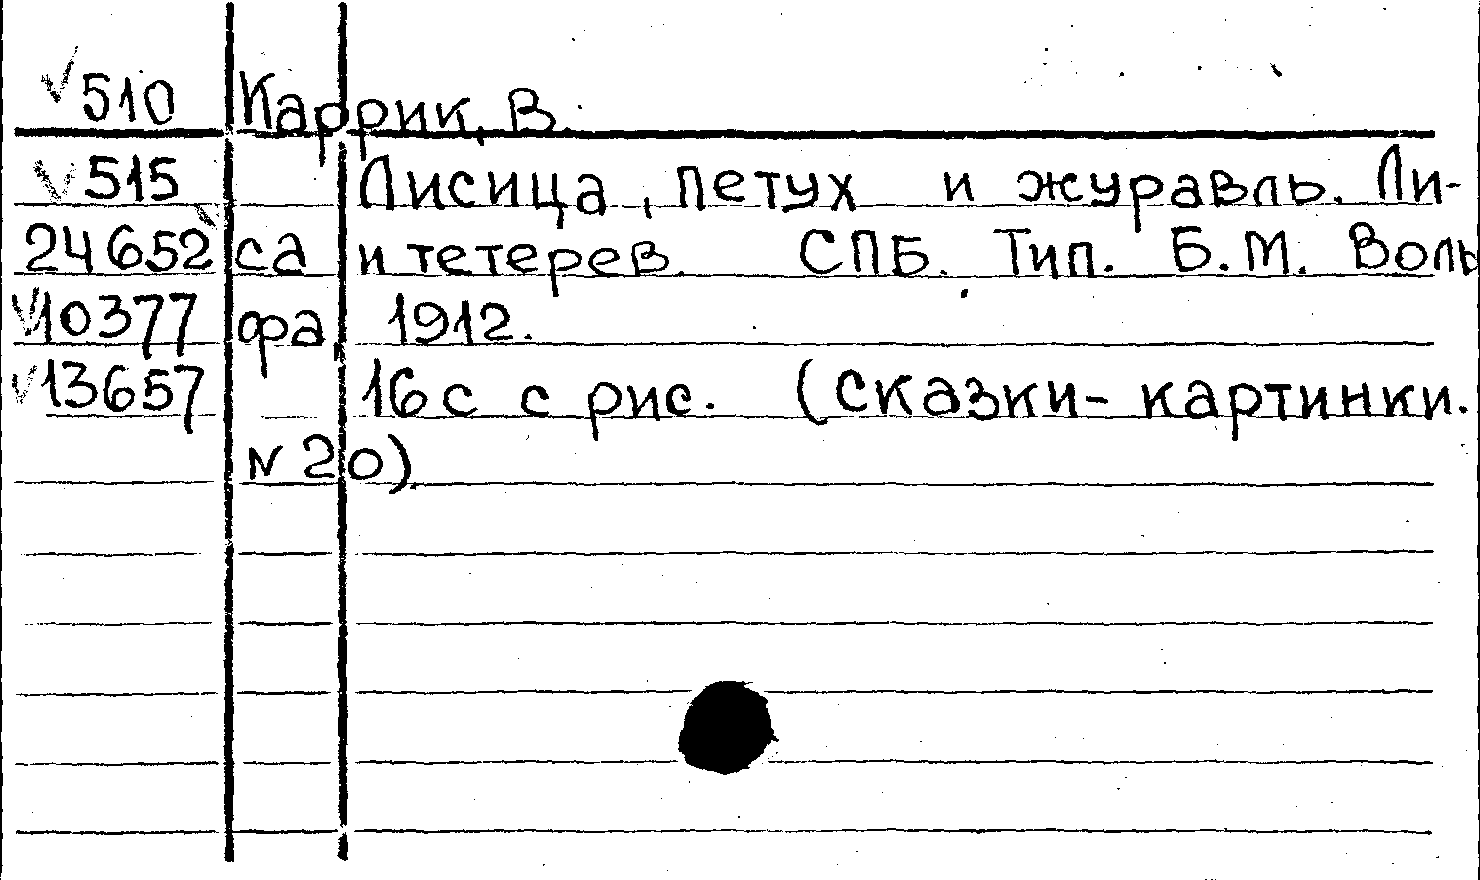 √510 Каррик, В.
√515 Лисица, петух и журавль. Ли-
24652 са и тетерев. СПБ. Тип. Б.М. Воль
√10377 фа, 1912.
√13657 16 с с рис. (сказки-картинки.
N 20).